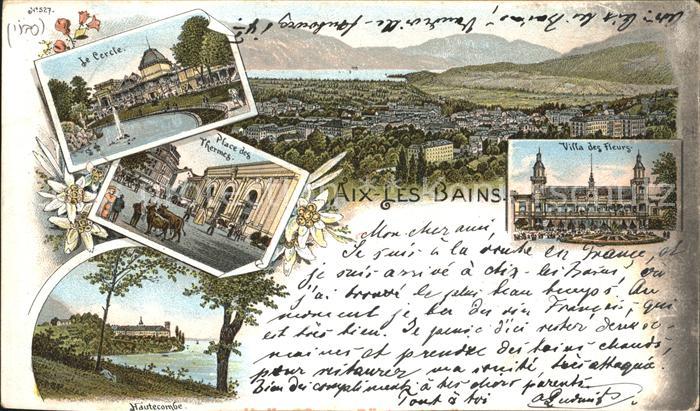 No 527.
(1120)
Aix les Bains,
Le Cercle.
Place des
Thermes.
Villa des Fleurs.
AIX-LES-BAINS.
Mon cher ami,
Je suis à la route en France, et
je suis arrivé à Aix-les-Bains, où
j'ai trouvé le plus beau temps. Au
moment je bois du vin Français, qui
est très bien. Je pense d'ici rester deux se-
maines et prendre des bains chauds,
pour restaurer ma santé, très attaquée.
Bien des compliments à tes chers parents.
Tout à toi
Hautecombe.